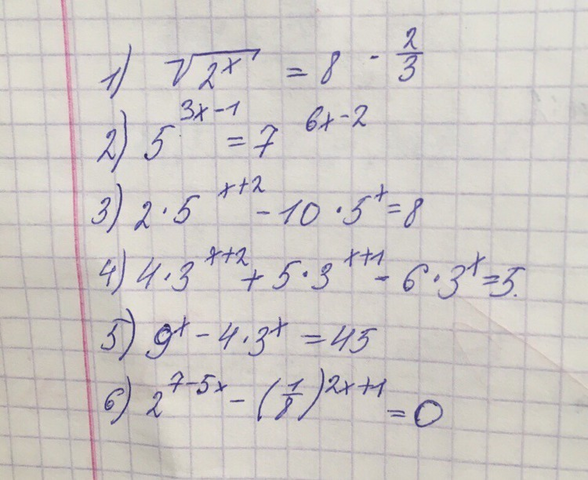 1) √2ˣ = 8^(-2/3)
2) 5^(3x-1) = 7^(6x-2)
3) 2·5^(x+2) - 10·5^x = 8
4) 4·3^(x+2) + 5·3^(x+1) - 6·3^x = 5.
5) 9^x - 4·3^x = 45
6) 2^(7-5x) - (1/8)^(2x+1) = 0